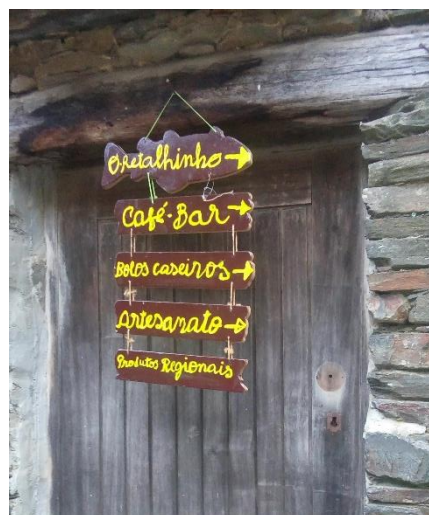 O.Retalhinho →
Café-Bar →
Bolos caseiros →
Artesanato →
Produtos Regionais